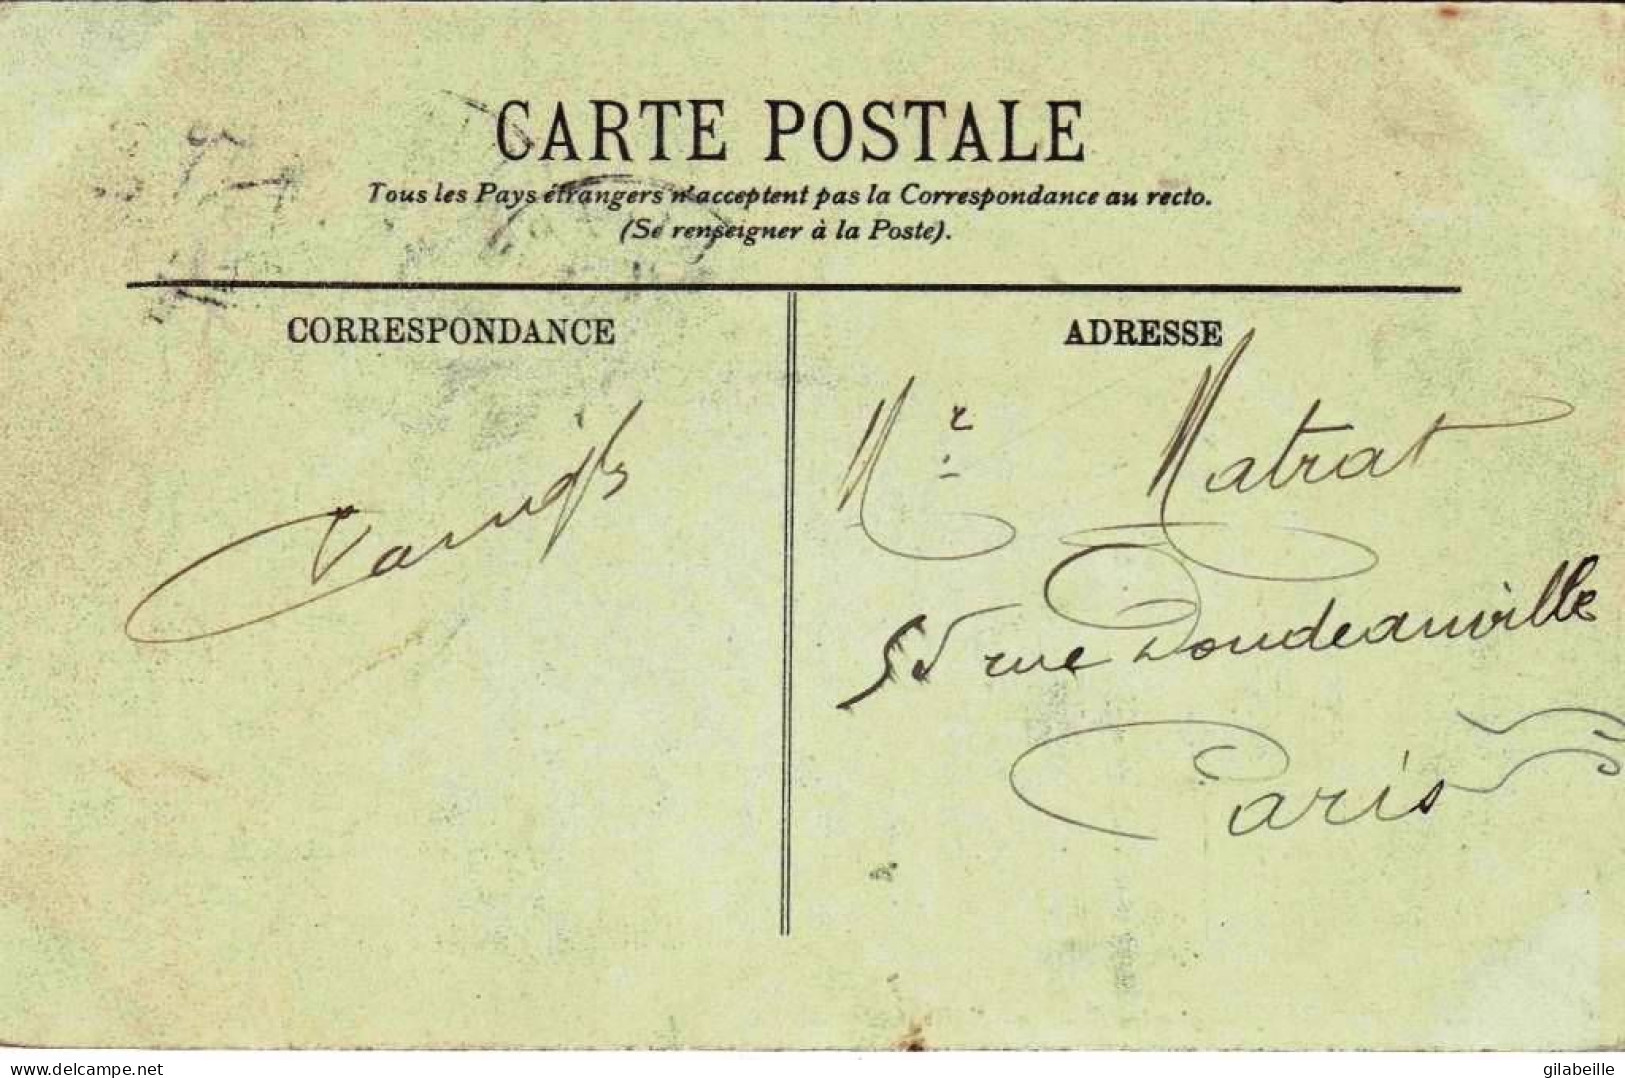 CARTE POSTALE
Tous les Pays étrangers n'acceptent pas la Correspondance au recto.
(Se renseigner à la Poste).
CORRESPONDANCE
ADRESSE
Mr Matrat
55 rue Doudeauville
Paris
delcampe.net
gilabeille